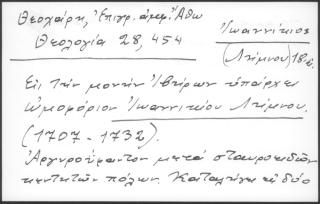 Θεοχαρίδη, Ἐπιγρ. ἀμφ. Ἄθω
Θεολογία 28, 454
Ἰωαννίκιος
(Λήμνου) 18ος
Εἰς τὴν μονὴν Ἰβήρων ὑπάρχει
ὠμοφόριον Ἰωαννικίου Λήμνου.
(1707 - 1732).
Ἀργυροΰφαντον μετὰ σταυροειδῶν
κεντητῶν πόλων. Καταλήγει εἰς δύο